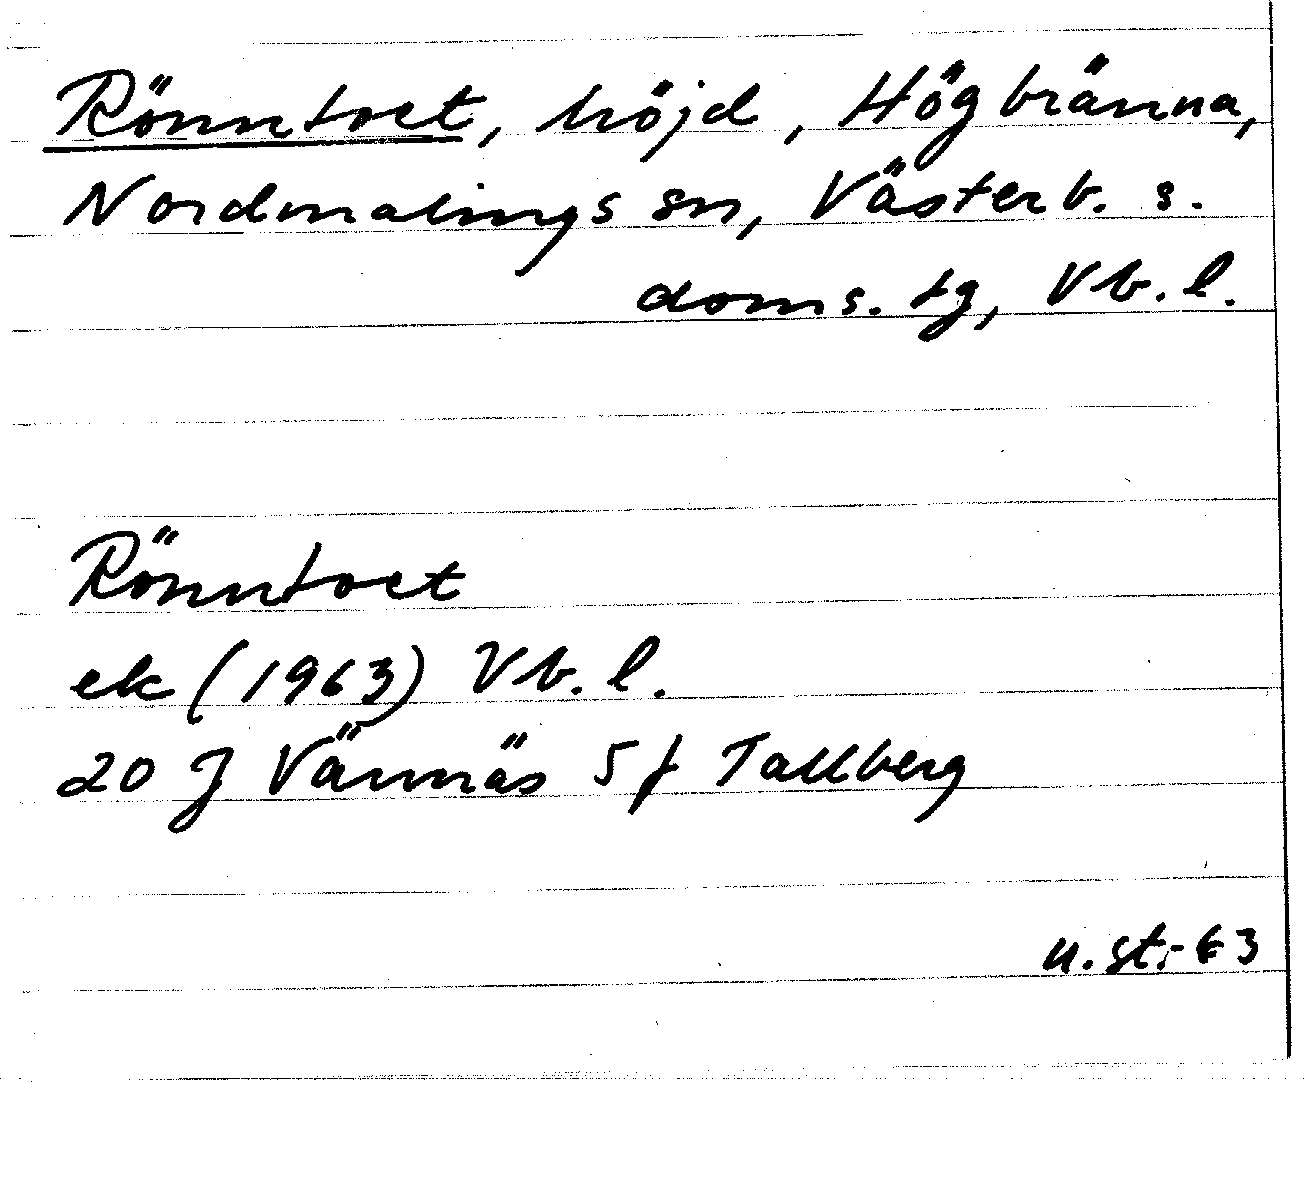 Rönntoet, höjd, Högbränna,
Nordmalings sn, Västerb. s.
doms. tg, Vb. l.
Rönntoet
ek (1963) Vb. l.
20 J Vännäs 5 f Tallberg
u. st. 63